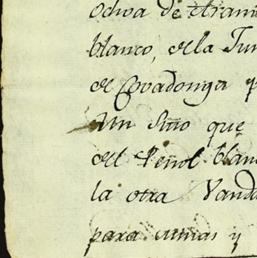 Ochoa de Arami
blanco, de la Jun
de Covadonga p
Un Sitio que
del Peñol blan
la otra Vanda
para minas y